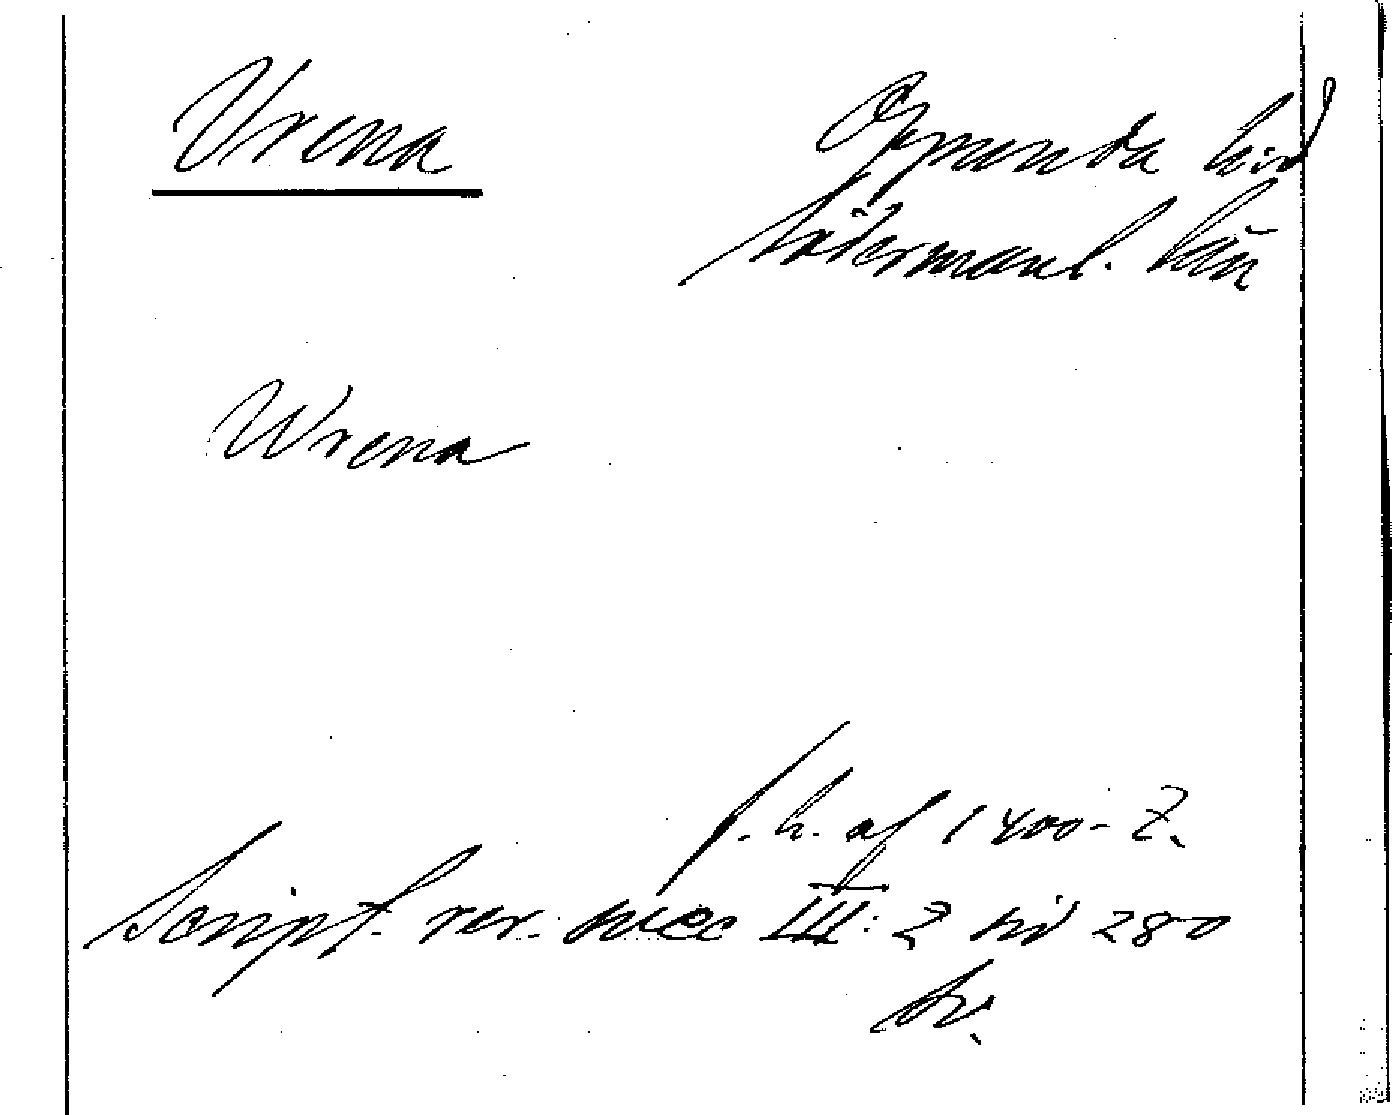 Vrena
Oppunda hd
Södermanl. län
Wrena
f. h. af 1400-t.
Script. rer. svec III: 2 sid 280
sv.